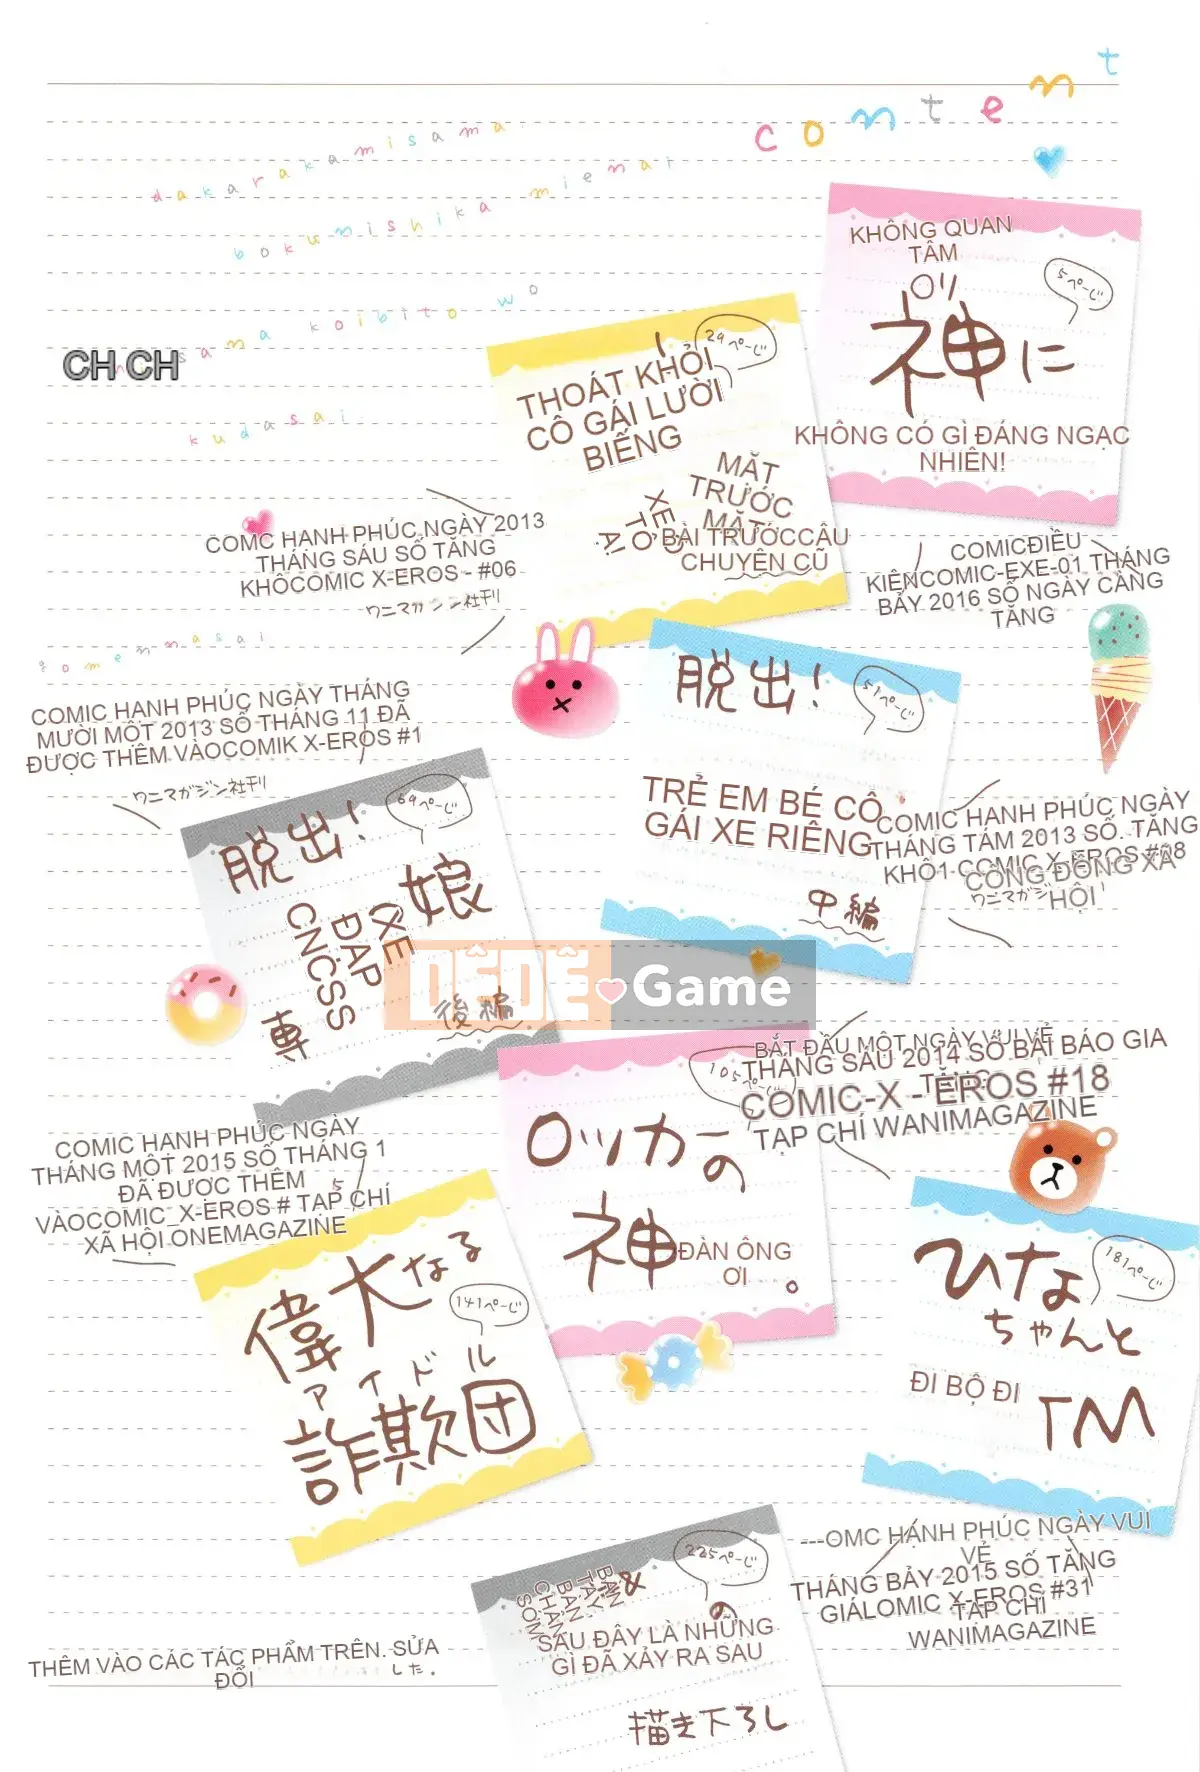 content
dakarakamisama
bokunishika mienai
sama koibito wo
CH CH
kudasai
gomennasai
KHÔNG QUAN
TÂM
5ページ
ロリ
神に
KHÔNG CÓ GÌ ĐÁNG NGẠC
NHIÊN!
COMICĐIỀU
KIỆNCOMIC-EXE-01 THÁNG
BẢY 2016 SỐ NGÀY CÀNG
TĂNG
29ページ
THOÁT KHỎI
CÔ GÁI LƯỜI
BIẾNG
MẶT
TRƯỚC
MẶT
XE Ô
TÔ
TA!
BÀI TRƯỚCCÂU
CHUYỆN CŨ
COMC HẠNH PHÚC NGÀY 2013
THÁNG SÁU SỐ TĂNG
KHÔCOMIC X-EROS - #06
ワニマガジン社刊
脱出!
51ページ
TRẺ EM BÉ CÔ
GÁI XE RIÊNG
中編
COMIC HẠNH PHÚC NGÀY
THÁNG TÁM 2013 SỐ. TĂNG
KHÔ1 COMIC X-EROS #08
CỘNG ĐỒNG XÃ
HỘI
ワニマガジ
COMIC HẠNH PHÚC NGÀY THÁNG
MƯỜI MỘT 2013 SỐ THÁNG 11 ĐÃ
ĐƯỢC THÊM VÀOCOMIK X-EROS #1
ワニマガジン社刊
脱出!
69ページ
娘
(XE
ĐẠP
CNCSS
専
後編
DÊDÊ Game
105ページ
ロッカーの
神
ĐÀN ÔNG
ƠI
。
BẮT ĐẦU MỘT NGÀY VUI VẺ
THÁNG SÁU 2014 SỐ BÀI BÁO GIA
TĂNG
COMIC-X - EROS #18
TẠP CHÍ WANIMAGAZINE
COMIC HẠNH PHÚC NGÀY
THÁNG MỘT 2015 SỐ THÁNG 1
ĐÃ ĐƯỢC THÊM
VÀOCOMIC_X-EROS # TẠP CHÍ
XÃ HỘI ONEMAGAZINE
偉大なる
アイドル
141ページ
詐欺団
181ページ
ひな
ちゃんと
ĐI BỘ ĐI
TM
---OMC HẠNH PHÚC NGÀY VUI
VẺ
THÁNG BẢY 2015 SỐ TĂNG
GIÁLOMIC X-EROS #31
TẠP CHÍ
WANIMAGAZINE
225ページ
BẠN
TAY
BẠN
CHÂN
SỚM
&
の
SAU ĐÂY LÀ NHỮNG
GÌ ĐÃ XẢY RA SAU
描き下ろし
THÊM VÀO CÁC TÁC PHẨM TRÊN. SỬA
ĐỔI
した.